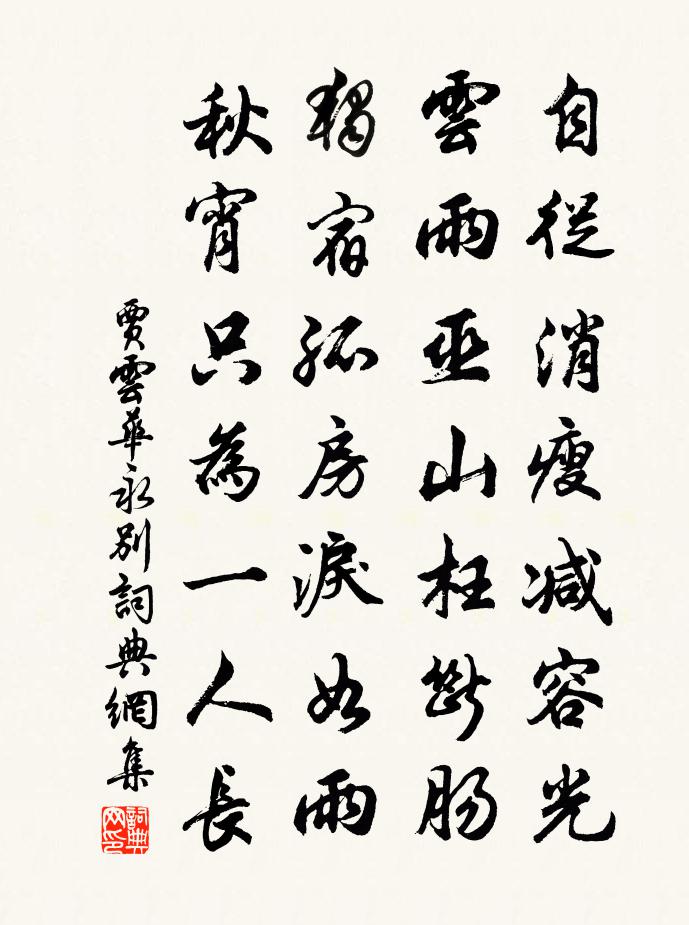 自從消瘦減容光
雲雨巫山枉斷腸
獨宿孤房淚如雨
秋宵只為一人長
賈雲華永別詞典網集
詞典網印